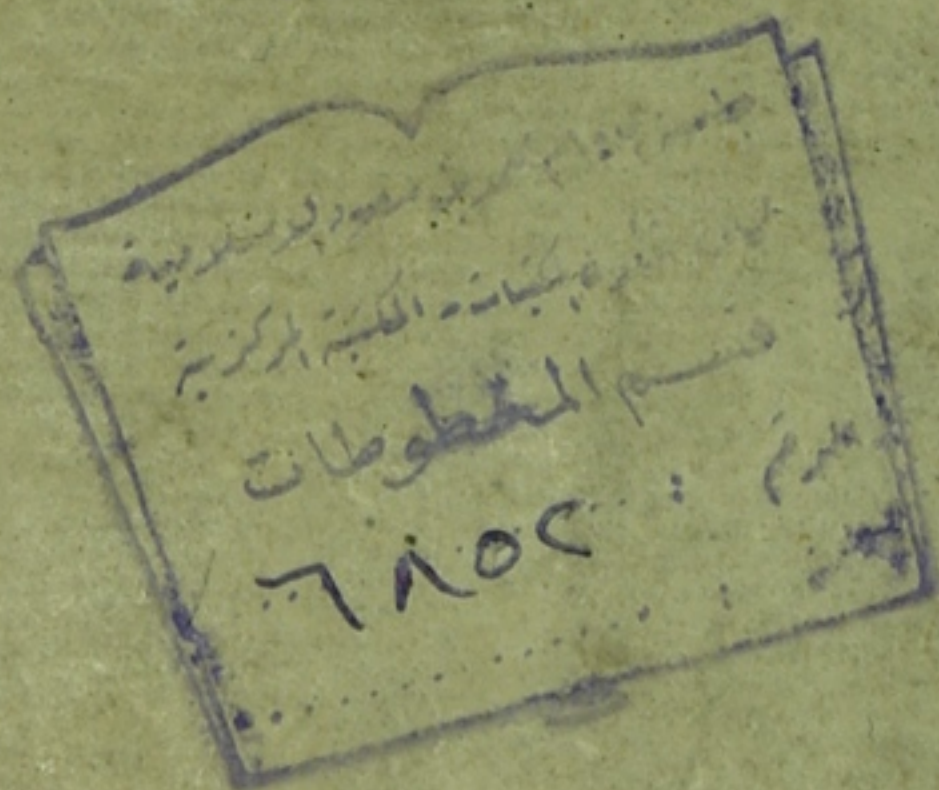 جامعة الإمام محمد بن سعود الإسلامية
عمادة شؤون المكتبات - المكتبة المركزية
قسم المخطوطات
الرقم : ٦٨٥٢